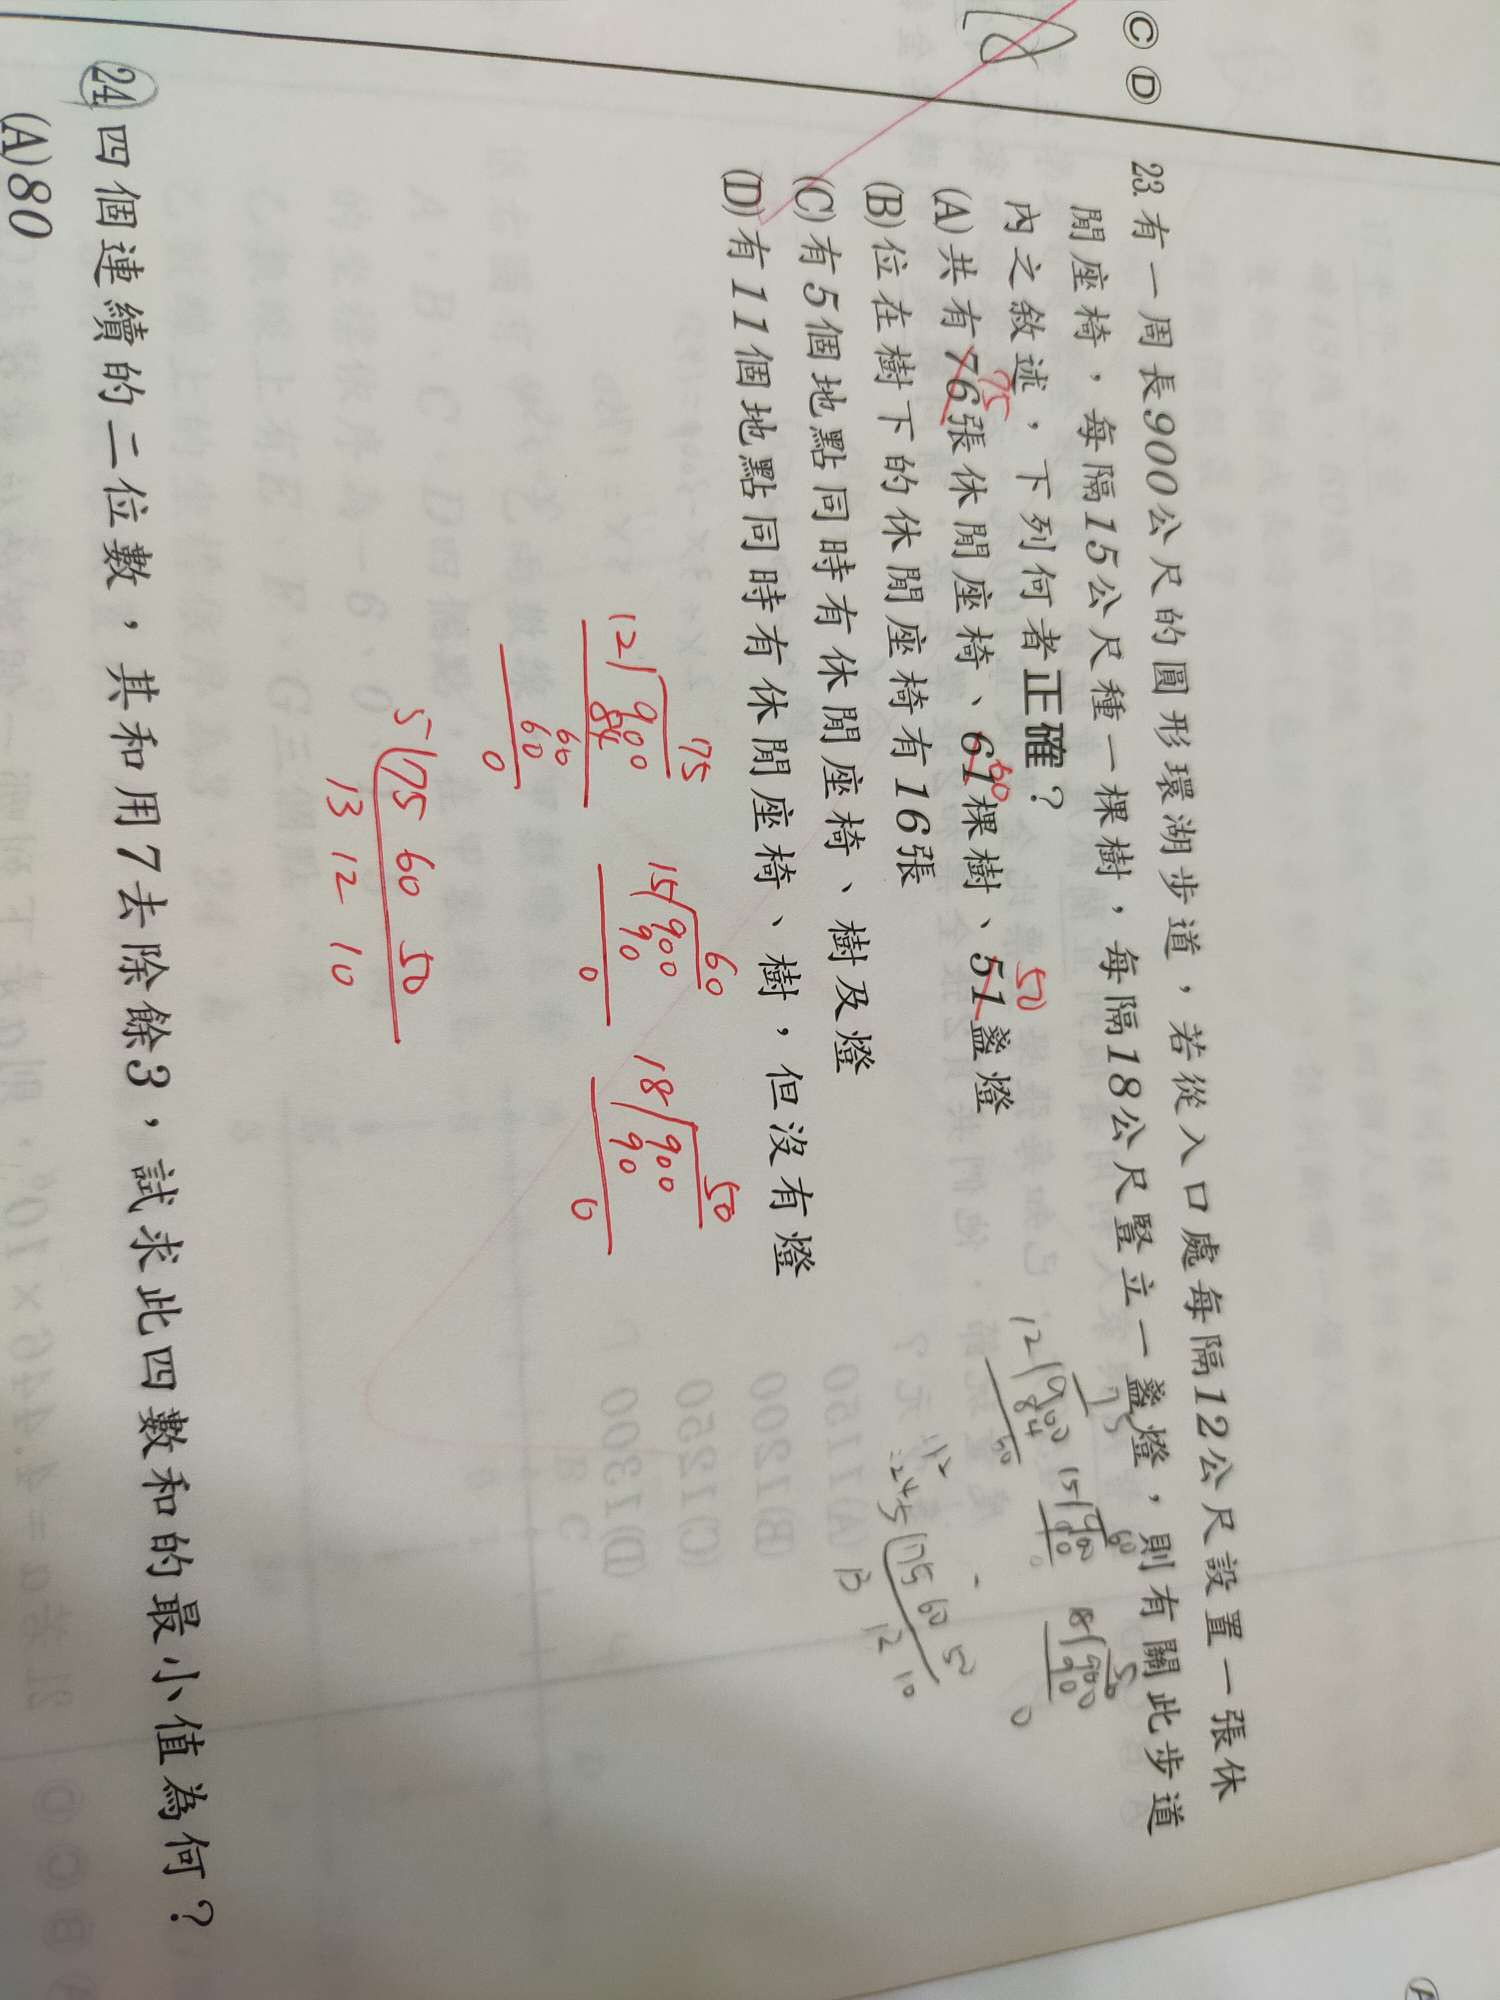 Ⓒ Ⓓ
23. 有一周長900公尺的圓形環湖步道，若從入口處每隔12公尺設置一張休
閒座椅，每隔15公尺種一棵樹，每隔18公尺豎立一盞燈，則有關此步道
內之敘述，下列何者正確？
(A)共有76張休閒座椅、61棵樹、51盞燈
75 60 50
(B)位在樹下的休閒座椅有16張
(C)有5個地點同時有休閒座椅、樹及燈
(D)有11個地點同時有休閒座椅、樹，但沒有燈
75
12)900
84
60
60
0
60
15)900
90
0
50
18)900
90
0
5)75 60 50
13 12 10
75
12)900
84
60
60
15)900
90
0
50
18)900
90
0
5)75 60 50
13 12 10
24. 四個連續的二位數，其和用7去除餘3，試求此四數和的最小值為何？
(A)80